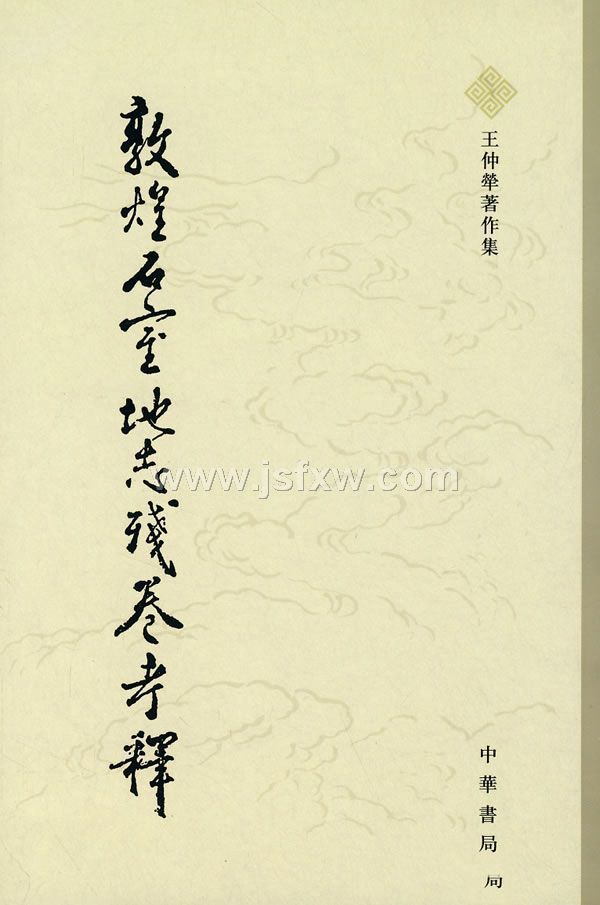 王仲犖著作集
敦煌石室地志殘卷考釋
www.jsfxw.com
中華書局
局